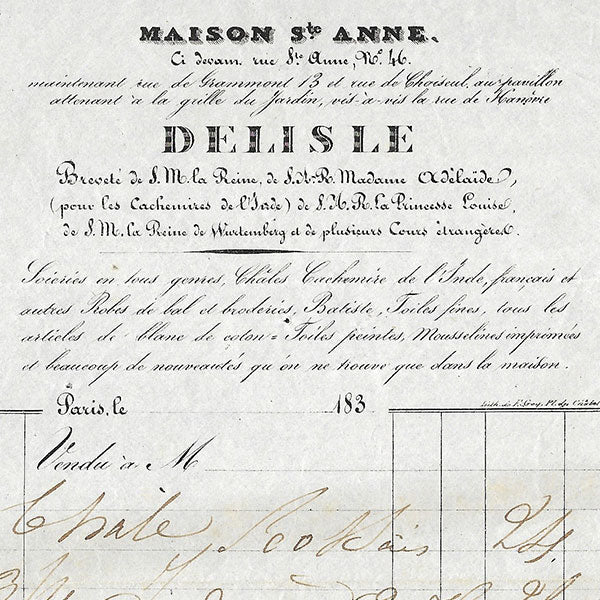 MAISON Ste ANNE.
Ci devam. rue Ste Anne, No. 46.
maintenant rue de Grammont 13 et rue de Choiseul, au pavillon
attenant à la grille du Jardin, vis-à-vis la rue de Hanôvre
DELISLE
Breveté de S.M. la Reine, de S.A.R. Madame Adélaïde,
(pour les Cachemires de l'Inde) de S.A.R. la Princesse Louise,
de S.M. la Reine de Wurtemberg et de plusieurs Cours étrangères.
Soieries en tous genres, Châles Cachemire de l'Inde, français et
autres Robes de bal et broderies, Batiste, Toiles fines, tous les
articles de blanc de coton = Toiles peintes, Mousselines imprimées
et beaucoup de nouveautés qu'on ne trouve que dans la maison.
Paris, le 183
Lith. de
Vendu à M
Chale 24